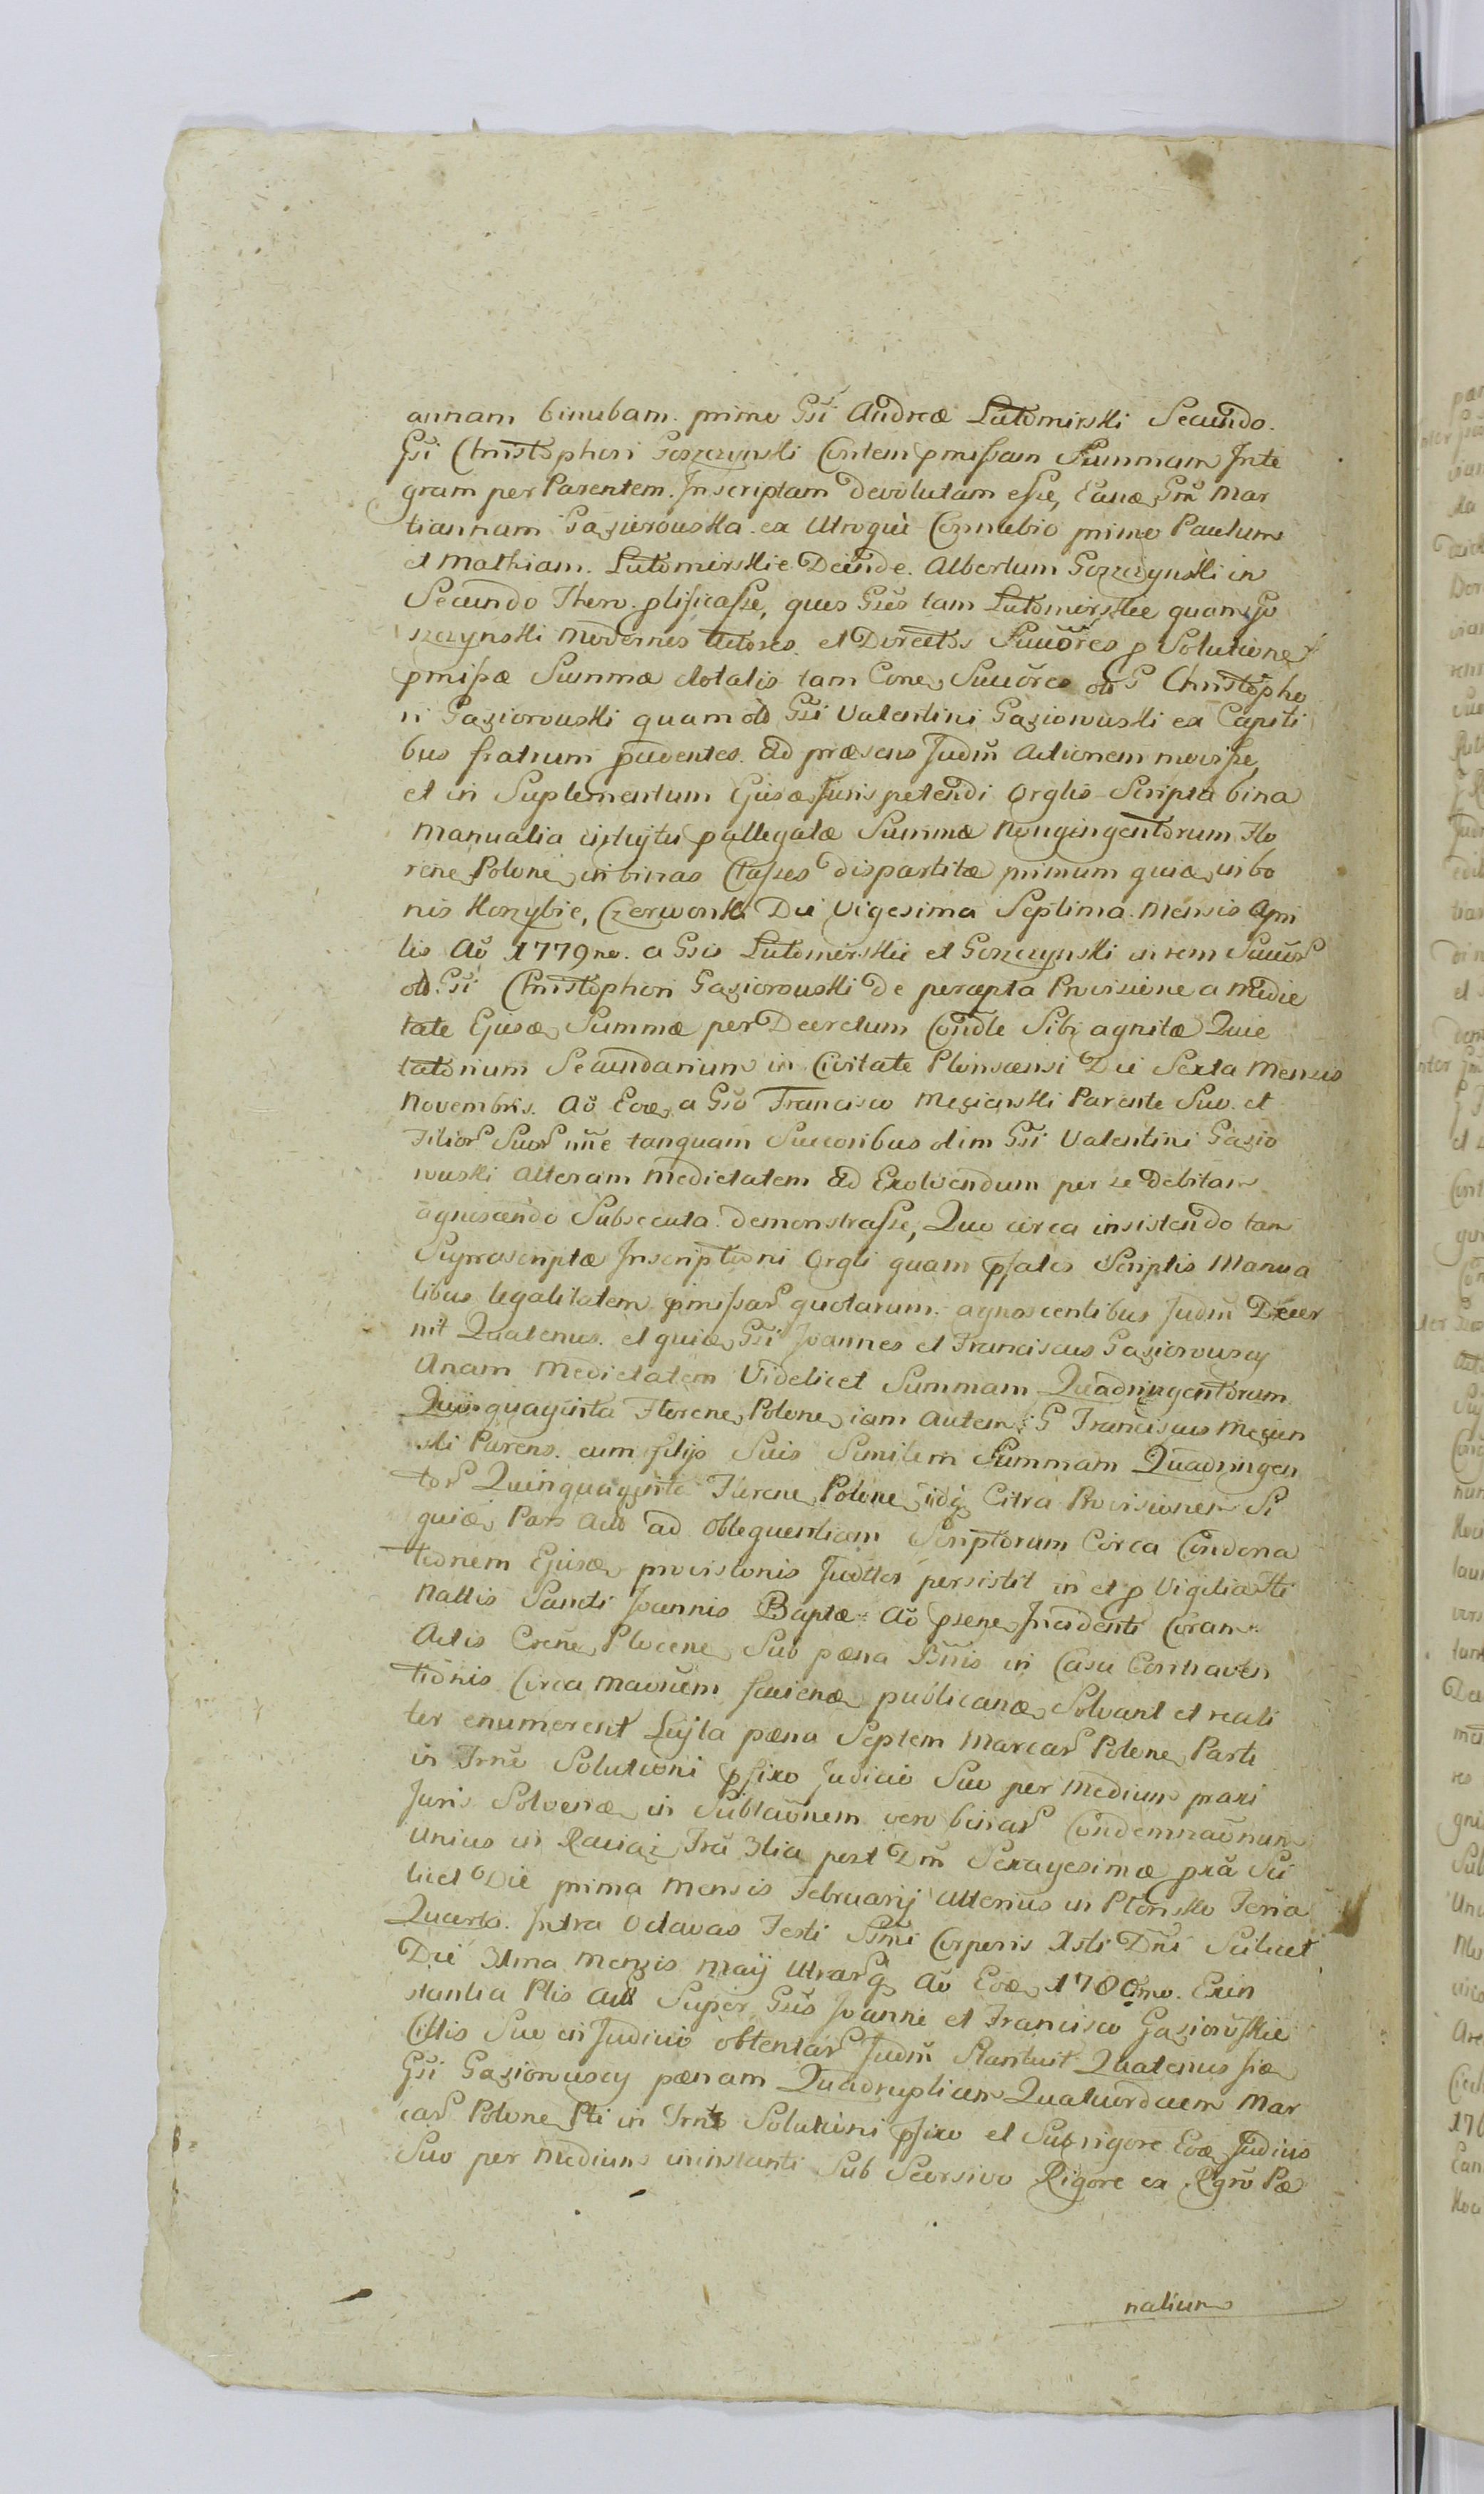 annam binubam. primo Gsi Andreæ Lutomirski Secundo.
Gsi Christophori Goszczynski Contem pmissam Summam Inte
gram per Parentem. Inscriptam devolutam esse, Eanæ Gm Mar
tiannam Gąsiorouska ex Utroque Connubio primo Paulum
et Mathiam. Lutomirskie Deinde. Albertum Gozczynski in
Secundo Thoro. plificasse, quos Gsos tam Lutomirskie quam Go
szczynski modernos Actores. et Directos Succores p Solutione
pmissæ Summæ dotalis tam Cone Succores ol G Christopho
ri Gąsiorouski quam ol Gsi Valentini Gąsiorouski ex Capiti
bus fratrum pcuventes. Ad præsens Judm Actionem movisse,
et in Suplementum Ejusæ Juris petendi Orglis Scripta bina
Manualia intuytu pallegatæ Summæ Nongingentorum Flo
rene Polone in binas Classes dispartitæ primum quiæ in bo
nis Korzybie, Czerwonka Die Vigesima Septima. Mensis Apri
lis Aö 1779no. a Gsis Lutomirskie et Goszczynski in rem Succor
ol. Gsi Christophori Gąsiorouski de percepta Provisione a Medie
tate Ejusæ Summæ per Decretum Condle Sibi agnitæ Quie
tatorium Secundarium in Civitate Plonscensi Die Sexta Mensis
Novembris. Aö Eoæ a Gso Francisco Męcienski Parente Suo. et
Filior Suor nne tanquam Succoribus olim Gsi Valentini Gąsio
rouski alteram Medietatem ad Exolvendum per se Debitam
agnoscendo Subsecuta. demonstrasse, Quo circa insistendo tam
Suprascriptæ Inscriptioni Orgli quam pfatis Scriptis Manua
libus legalitatem pmissar quotarum. agnoscentibus Judm Decer
nit Quatenus. et quiæ Gsi Joannes et Franciscus Gąsiorouscy
Unam Medietatem Videlicet Summam Quadringentorum
Quinquaginta Florene Polone iam Autem G Franciscus Męcien
ski Parens. cum filijs Suis Similem Summam Quadringen
tor Quinquaginta Florene Polone idq Citra Provisionem Si
quiæ Pars Acto ad obloquentiam Scriptorum Circa Condona
tionem Ejusæ provisionis Judtter persistit in et p Vigilia Fti
Nattis Sancti Joannis Baptæ Aö psene Incidenti Coram
Actis Crene Plocene Sub pæna Bnis in Casu Contraven
tionis Circa Maonem faciendæ publicanæ Solvant et reali
ter enumerent Luyta pæna Septem Marcar Polone Parti
in Trno Solutioni pfixo Judicio Suo per Medium praxi
Juris Solvenæ in Sublaönem vero binar Condemnaönum
Unius in Raciąż Fra 3tia post Dm Sexagesimæ pxa Sci
licet Die prima Mensis Februarij Alterius in Płonsko Feria
Quarta. Intra Octavas Festi Ssmi Corporis Xsti Dni Scilicet
Die 31ma Mensis Maij Utrarq Aö Eoæ 1780mo. Exin
stantia Ptis Act Super Gsos Joanne et Francisco Gąsiorouskie
Cittis Suo in Judicio obtentar Judm Statuit Quatenus siæ
Gsi Gąsiorouscy pænam Quadruplicem Quatuordecem Mar
car Polone Pti in Trno Solutioni pfixo et Sub rigore Eoæ Judicio
Suo per Medium ininstanti Sub Scorsivo Rigore ex Rgro Pæ
nalium